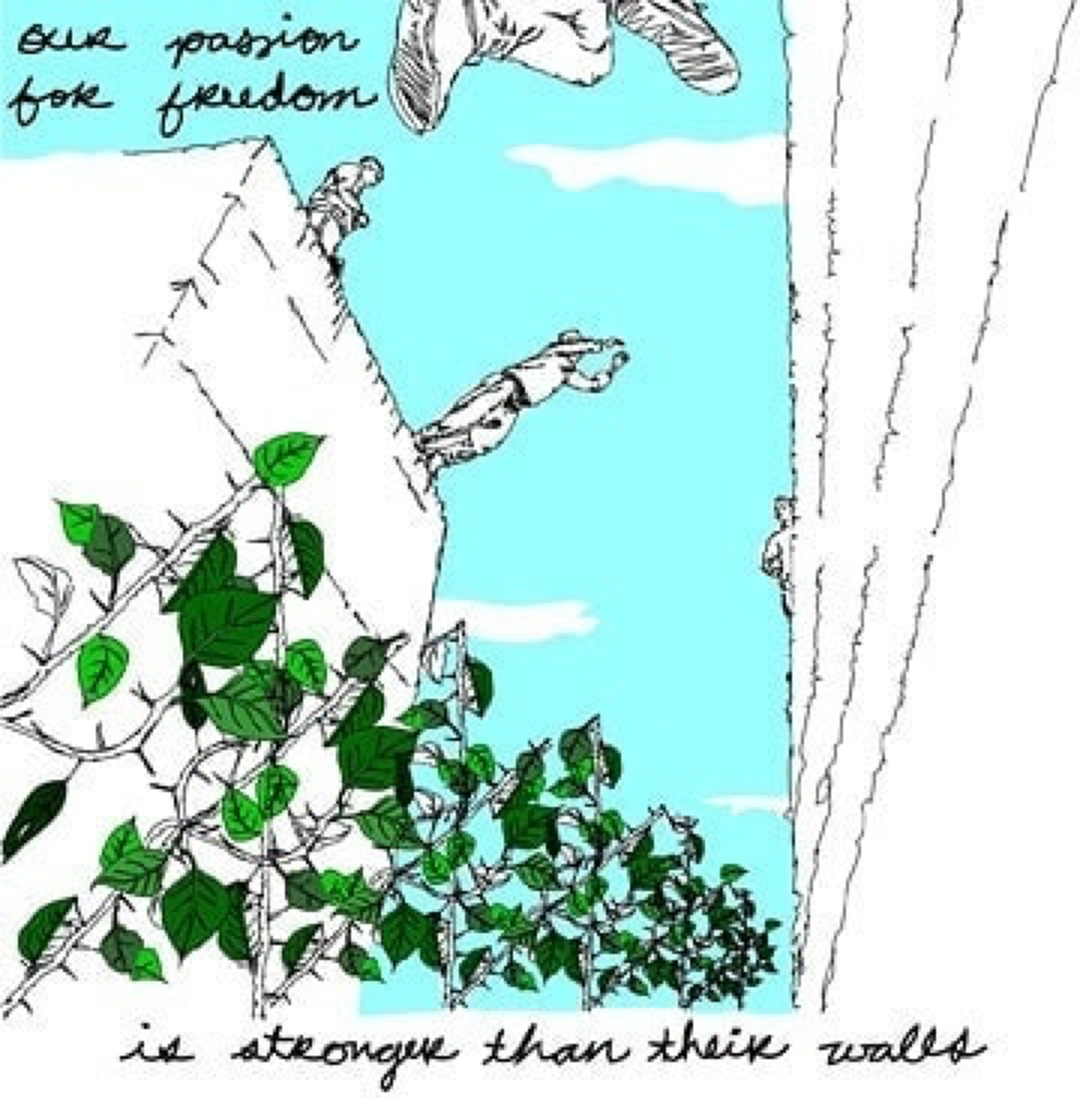 our passion
for freedom
is stronger than their walls